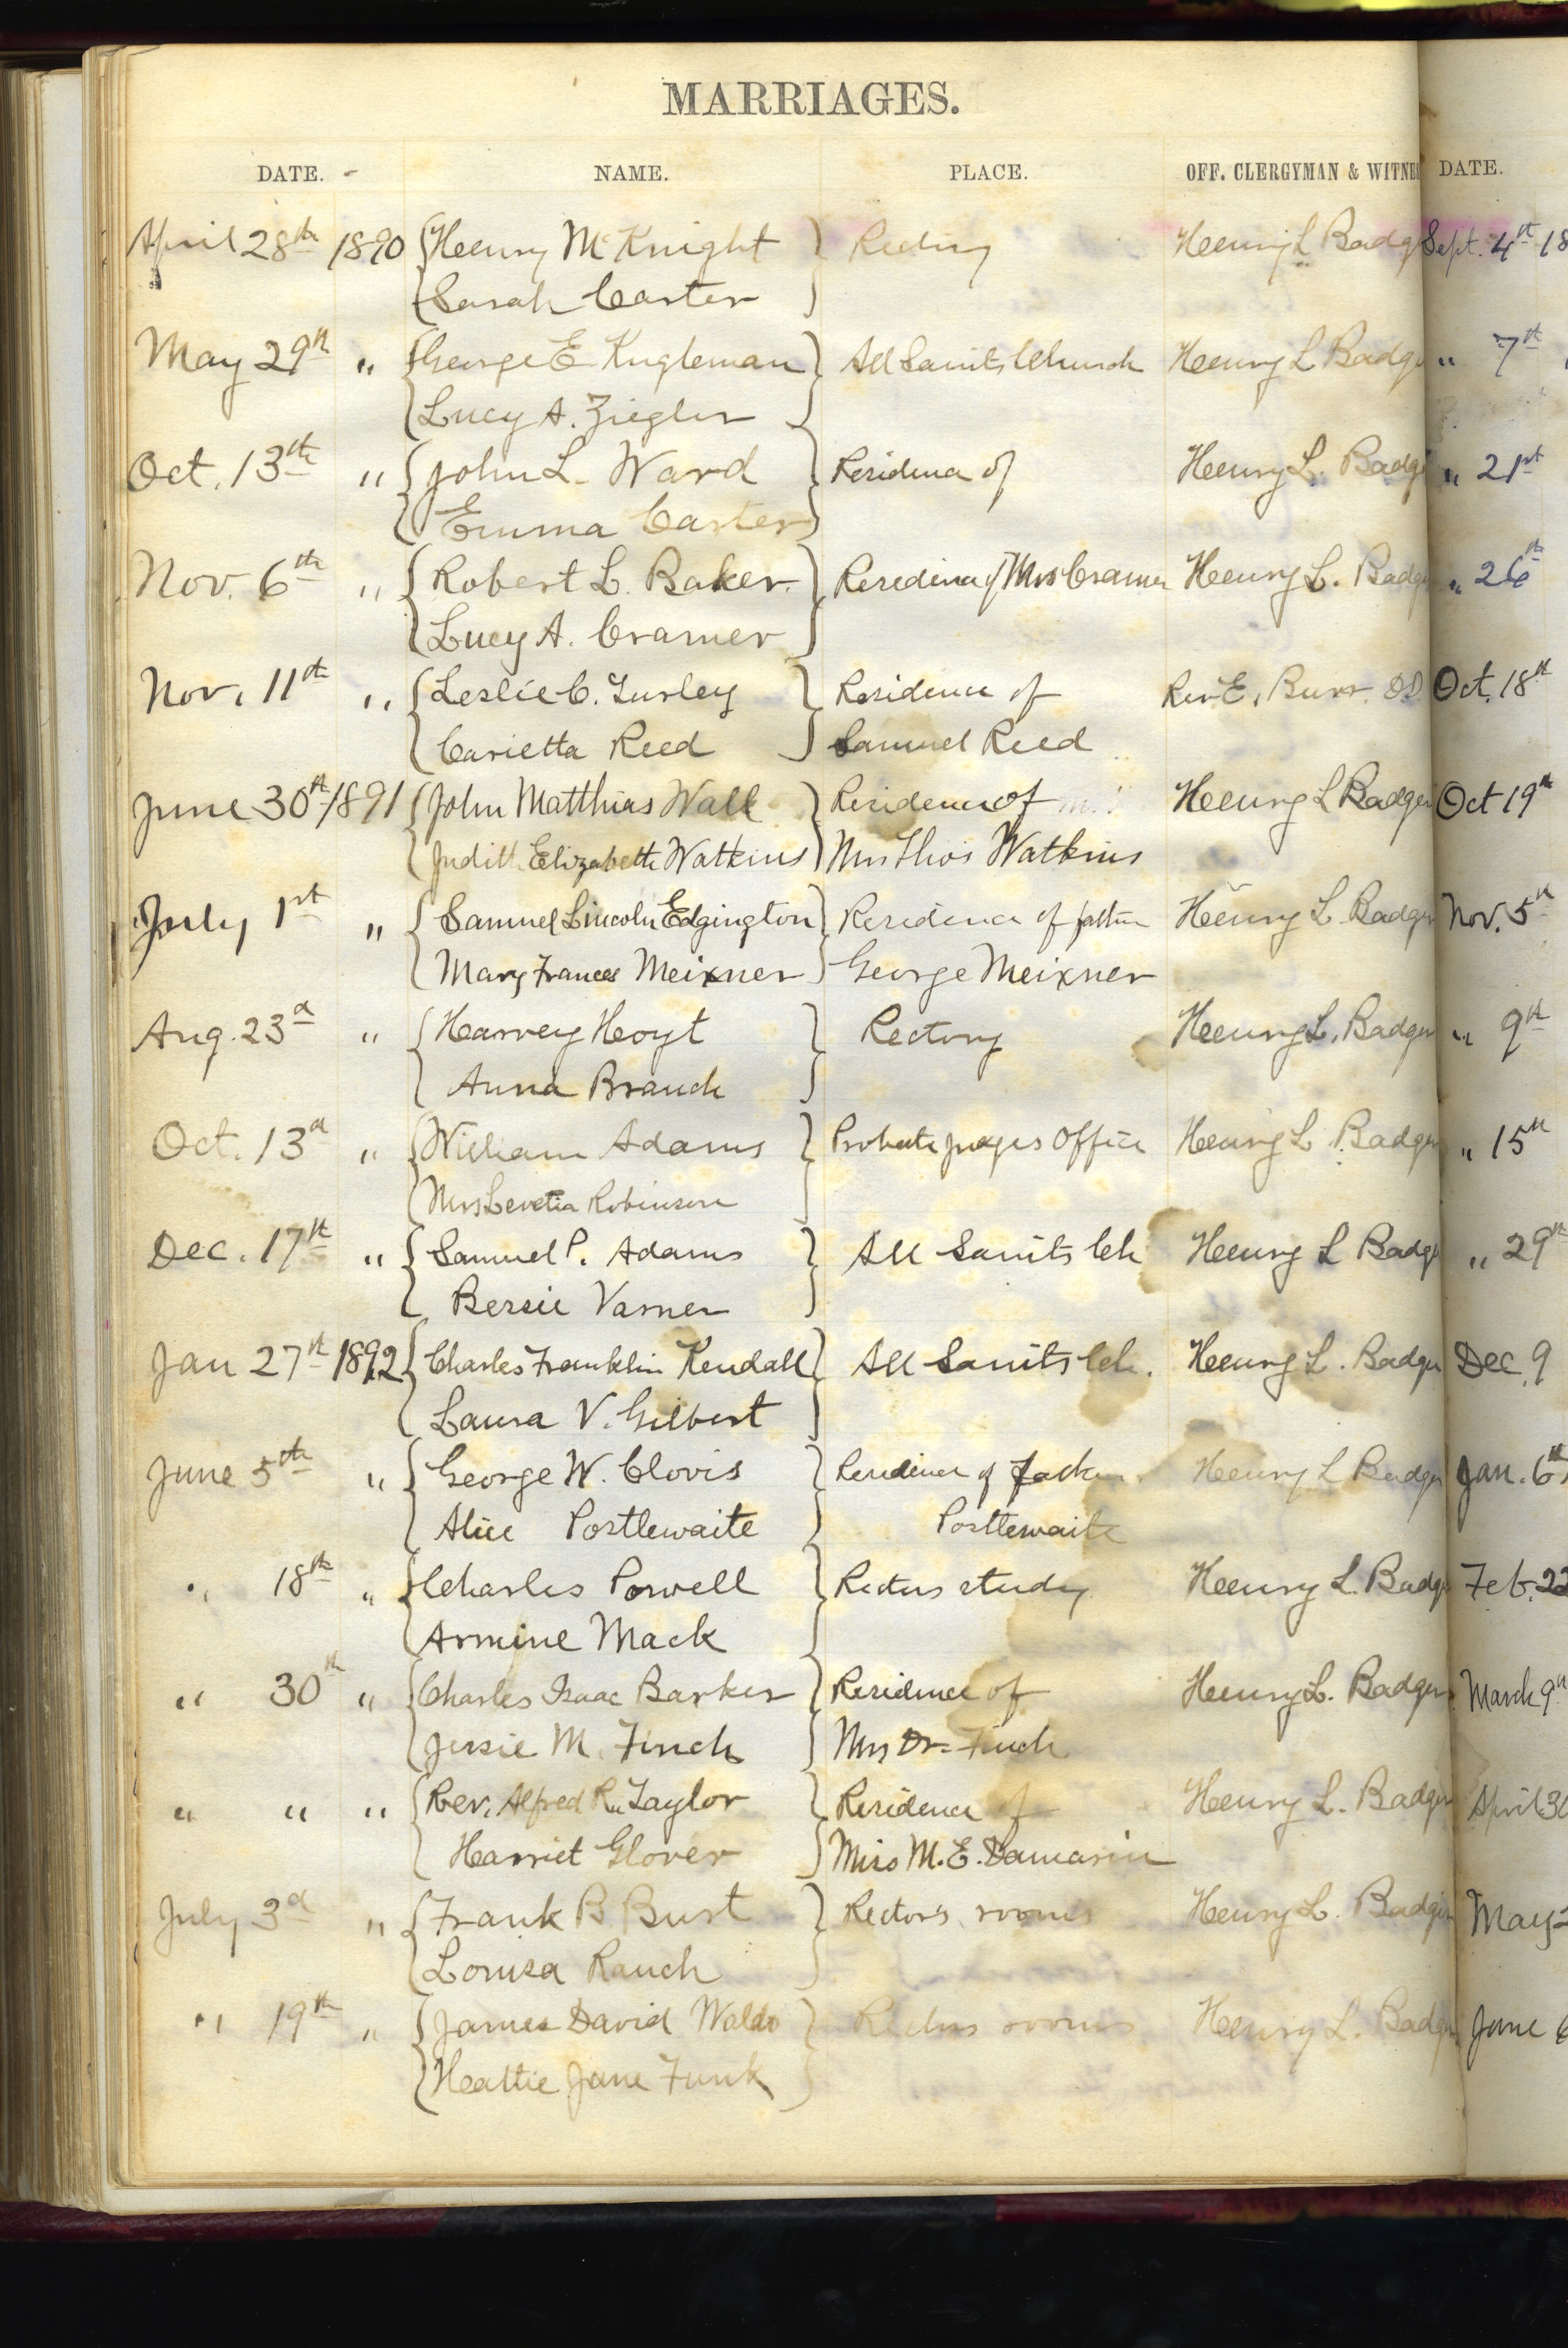 MARRIAGES.
DATE. NAME. PLACE. OFF. CLERGYMAN & WITNES DATE.
April 28th 1890 Henry McKnight Rectory Henry L Badg Sept. 4th 18
Sarah Carter
May 29th " George E Kugleman All Saints Church Henry L Badge " 7th
Lucy A. Ziegler
Oct. 13th " John L. Ward Residence of Henry L. Badg " 21st
Emma Carter
Nov. 6th " Robert L. Baker Residence of Mrs Cramer Henry L. Badg " 26th
Lucy A. Cramer
Nov. 11th " Leslie C. Turley Residence of Rev E. Burr. DD Oct. 18th
Carietta Reed Samuel Reed
June 30th 1891 John Matthias Wall Residence of Henry L Badger Oct 19th
Judith Elizabeth Watkins Mrs Thos Watkins
July 1st " Samuel Lincoln Edgington Residence of father Henry L. Badger Nov. 5th
Mary Frances Meixner George Meixner
Aug. 23d " Harvey Hoyt Rectory Henry L. Badger " 9th
Anna Branch
Oct. 13d " William Adams Probate judges Office Henry L. Badger " 15th
Mrs Levetia Robinson
Dec. 17th " Samuel P. Adams All Saints Ch Henry L Badg " 29th
Bessie Varner
Jan 27th 1892 Charles Franklin Kendall All Saints Ch. Henry L. Badger Dec. 9
Laura V. Gilbert
June 5th " George W. Clovis Residence of father Henry L Badger Jan. 6th
Alice Postlewaite Postlewaite
" 18th " Charles Powell Rectors study Henry L. Badg Feb. 22
Armine Mack
" 30th " Charles Isaac Barker Residence of Henry L. Badger March 9th
Jessie M. Finch Mrs Dr. Finch
" " " Rev. Alfred R. Taylor Residence of Henry L. Badger April 30
Harriet Glover Miss M. E. Damarin
July 3d " Frank B Burt Rector's rooms Henry L. Badger May
Louisa Rauch
" 19th " James David Waldo Rectors rooms Henry L. Badg June 6
Hattie Jane Funk